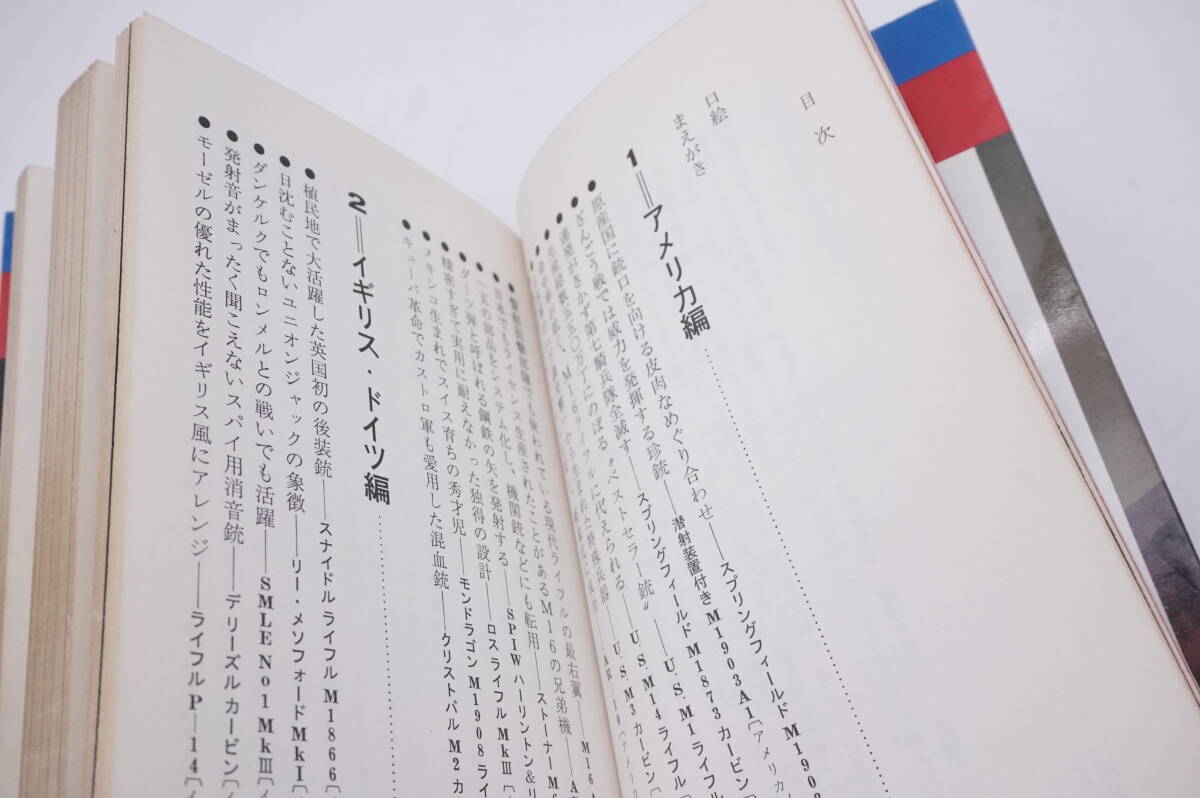 目次
口絵
まえがき
1＝アメリカ編
●原産国に銃口を向ける皮肉なめぐり合わせ――スプリングフィールドM1903
●ざんごう戦では威力を発揮する珍銃――潜射装置付きM1903A1［アメリカ
●連発がきかず第七騎兵隊全滅す――スプリングフィールドM1873カービン［
●生産総数五五〇万丁にのぼる〝ベストセラー銃〟――U.S.M1ライフル［
M16ライフルに代えられる――U.S.M14ライフル［
U.S.M3カービン［
AR-10［アメリ
使われている現代ライフルの最右翼――M16A
●日本でもライセンス生産されたことがあるM16の兄弟機――A
システム化し、機関銃などにも転用――ストーナーM6
●ダーツ弾と呼ばれる鋼鉄の矢を発射する――SPIWハーリントン＆リ
●精密すぎて実用に耐えなかった独得の設計――ロスライフルMkⅢ［
●メキシコ生まれでスイス育ちの秀才児――モンドラゴンM1908ライ
●キューバ革命でカストロ軍も愛用した混血銃――クリストバルM2カ
2＝イギリス・ドイツ編
●植民地で大活躍した英国初の後装銃――スナイドルライフルM1866［
●日沈むことないユニオンジャックの象徴――リー・メソフォードMkI［
●ダンケルクでもロンメルとの戦いでも活躍――SMLE No1 MkⅢ［イ
●発射音がまったく聞こえないスパイ用消音銃――デリーズルカービン［
●モーゼルの優れた性能をイギリス風にアレンジ――ライフルP―14［イ